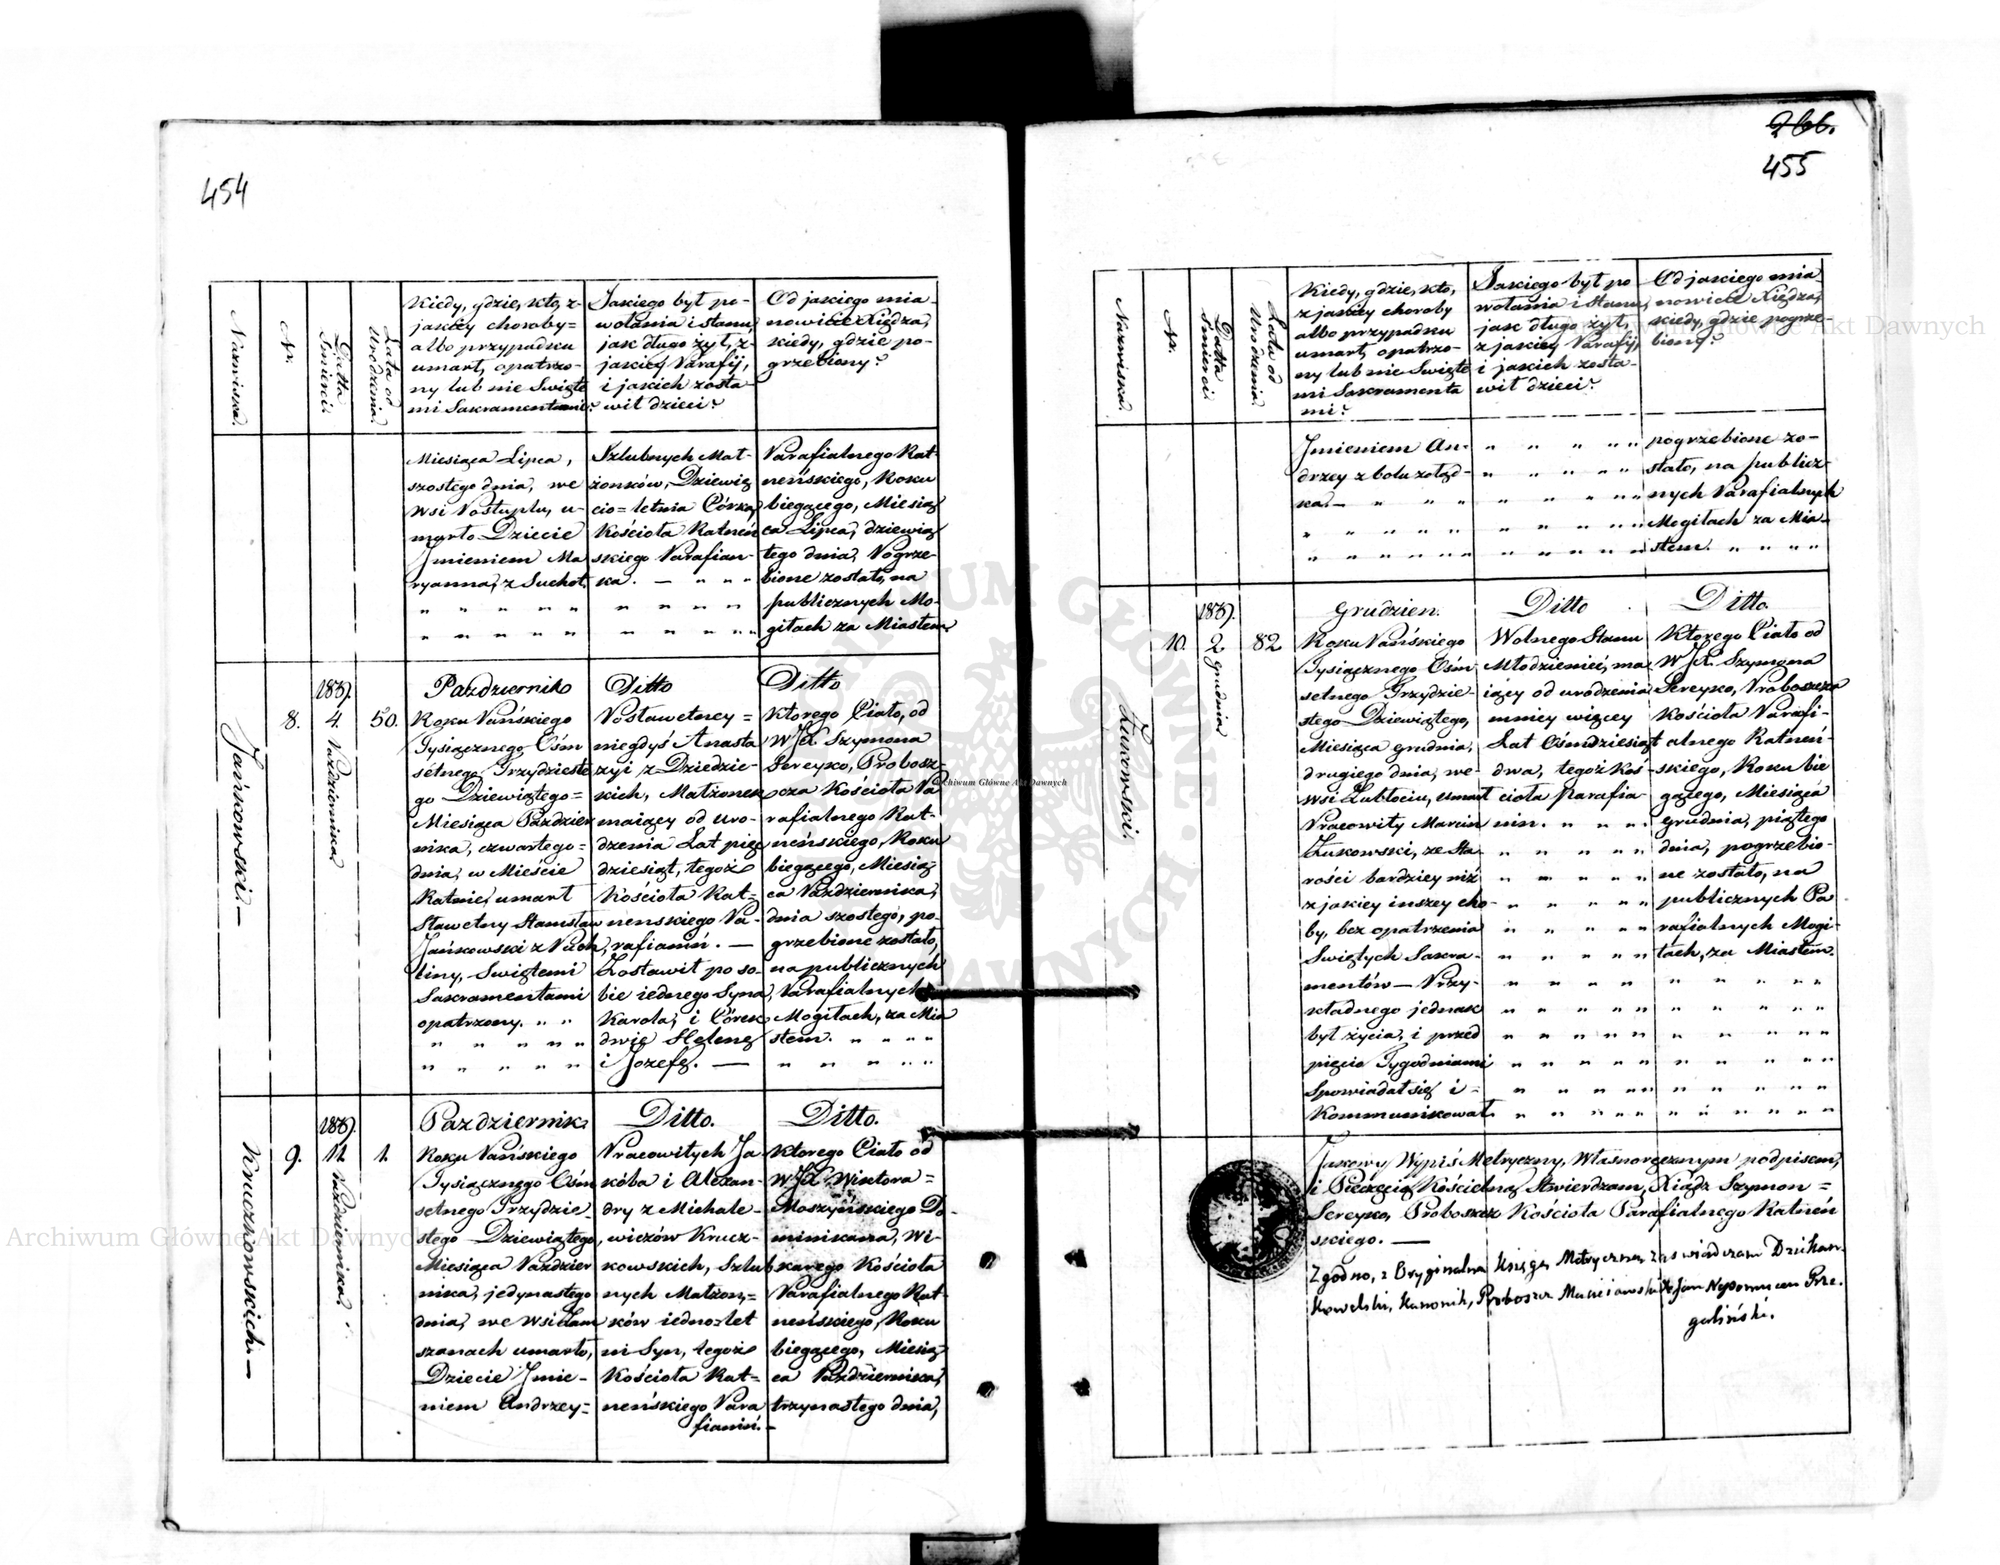 454
Nazwiska.
Nr.
Datta Śmierci.
Lata od Urodzenia.
Kiedy, gdzie, kto, z
jakiey choroby=
albo przypadku
umarł, opatrzo-
ny lub nie Święte
mi Sakramentami?
Jakiego był po-
wołania i stanu,
jak długo żył, z
jakiey Parafij,
i jakich zosta-
wił dzieci?
Od jakiego mia-
nowicie Xiędza,
kiedy, gdzie po-
grzebiony?
Miesiąca Lipca,
szostego dnia, we
wsi Postuplu, u-
marło Dziecie
Jmieniem Ma
ryanna, z Suchot.
Szlubnych Mał-
żonków, Dziewię
cio=letnia Córka,
Kościoła Ratneń
skiego Parafian-
ka. —
Parafialnego Rat-
neńskiego, Roku
biegącego, Miesią
ca Lipca, dziewią
tego dnia, Pogrze-
bione zostało, na
publicznych Mo-
giłach za Miastem.
Jańkowski.—
8.
1839.
4.
Października
50.
Pazdziernik
Roku Pańskiego
Tysiącznego Ośm
setnego Trzydzieste
go Dziewiątego=
Miesiąca Paździer
nika, czwartego=
dnia, w Mieście
Ratnie, umarł
Sławetny Stanisław
Jańkowski z Puch
liny, Świętemi
Sakramentami
opatrzony.
Ditto
Postawetney=
niegdyś Anasta
zyi z Dziedzic-
kich, Małżonek
maiący od uro-
dzenia Lat pięć
dziesiąt, tegoż
Kościoła Rat=
nenskiego Pa-
rafianin. —
Zostawił po so-
bie iednego Syna,
Karola, i Córek
dwie Helenę
i Jozefę. —
Ditto
Ktorego Ciało, od
WJX. Szymona
Sereyko, Probosz-
cza Kościoła Pa
rafialnego Rat-
neńskiego, Roku
biegącego, Miesią
ca Października,
dnia szostego, po-
grzebione zostało,
na publicznych
Parafialnych
Mogiłach, za Mia
stem.
Kruczkowskich.—
9.
1839.
11.
Października
1.
Pazdziernik
Roku Pańskiego
Tysiącznego Ośm
setnego Trzydzie-
stego Dziewiątego,
Miesiąca Paździer
nika, jedynastego
dnia, we wsi Zam
szanach umarło,
Dziecie Jmie-
niem Andrzey=
Ditto.
Pracowitych Ja
kóba i Alexan-
dry z Michale-
wiczów Krucz-
kowskich, Szlub
nych Małżon,=
ków iedno=let
ni Syn, tegoż
Kościoła Rat=
neńskiego Para
fianin.—
Ditto.
Ktorego Ciało od
WJX. Wiktora=
Moszyńskiego Do-
minikana, Wi-
karego Kościoła
Parafialnego Rat-
neńskiego, Roku
biegącego, Miesią
ca Października,
trzynastego dnia,
266.
455
Nazwiska.
Nr.
Datta Śmierci.
Lata od Urodzenia.
Kiedy, gdzie, kto,
z jakiey choroby
albo przypadku
umarł, opatrzo-
ny lub nie Święte
mi Sakramenta
mi?
Jakiego był po
wołania i Stanu,
jak długo żył,
z jakiey Parafij,
i jakich zosta-
wił dzieci?
Od jakiego mia-
nowicie Xiędza,
kiedy, gdzie pogrze-
biony?
Jmieniem An-
drzey z bolu żołąd-
ka.—
pogrzebione zo-
stało, na publicz-
nych Parafialnych
Mogiłach za Mia-
stem.
Żukowski.
10.
1839.
2
grudnia
82
Grudzien.
Roku Pańskiego
Tysiącznego Ośm
setnego Trzydzie-
stego Dziewiątego,
Miesiąca grudnia,
drugiego dnia, we-
wsi Żubłociu, umarł
Pracowity Marcin
Żukowski, ze Sta
rości bardziey niż
z jakiey inszey cho-
by, bez opatrzenia
Świętych Sakra-
mentów — Przy-
kładnego jednak
był życia, i przed
pięcio Tygodniami
Spowiadał się i=
Kommunikował.
Ditto
Wolnego Stanu
Młodzienieć, ma
iący od urodzenia
mniey więcey
Lat Ośmdziesiąt
dwa, tegoż Koś-
cioła Parafia-
nin.
Ditto.
Ktorego Ciało od
WJX. Szymona
Sereyko, Proboszcza
Kościoła Parafi-
alnego Ratneń-
skiego, Roku bie
gącego, Miesiąca
grudnia, piątego
dnia, pogrzebio-
ne zostało, na
publicznych Pa
rafialnych Mogi-
łach, za Miastem.
Jakowy Wypis Metryczny, Własnoręcznym podpisem,
i Pieczęcią Kościelną Stwierdzam, Xiądz Szymon=
Sereyko, Proboszcz Kościoła Parafialnego Ratneń
skiego. —
Zgodno, z Oryginalną Księgą Metryczną zaświadczam Dziekan
Kowelski, Kanonik, Proboszcz Maciejowski X. Jan Nepomucen Prze.
galiński.
Archiwum Główne Akt Dawnych
Archiwum Główne Akt Dawnych
Archiwum Główne Akt Dawnych
ARCHIWUM GŁÓWNE AKT DAWNYCH